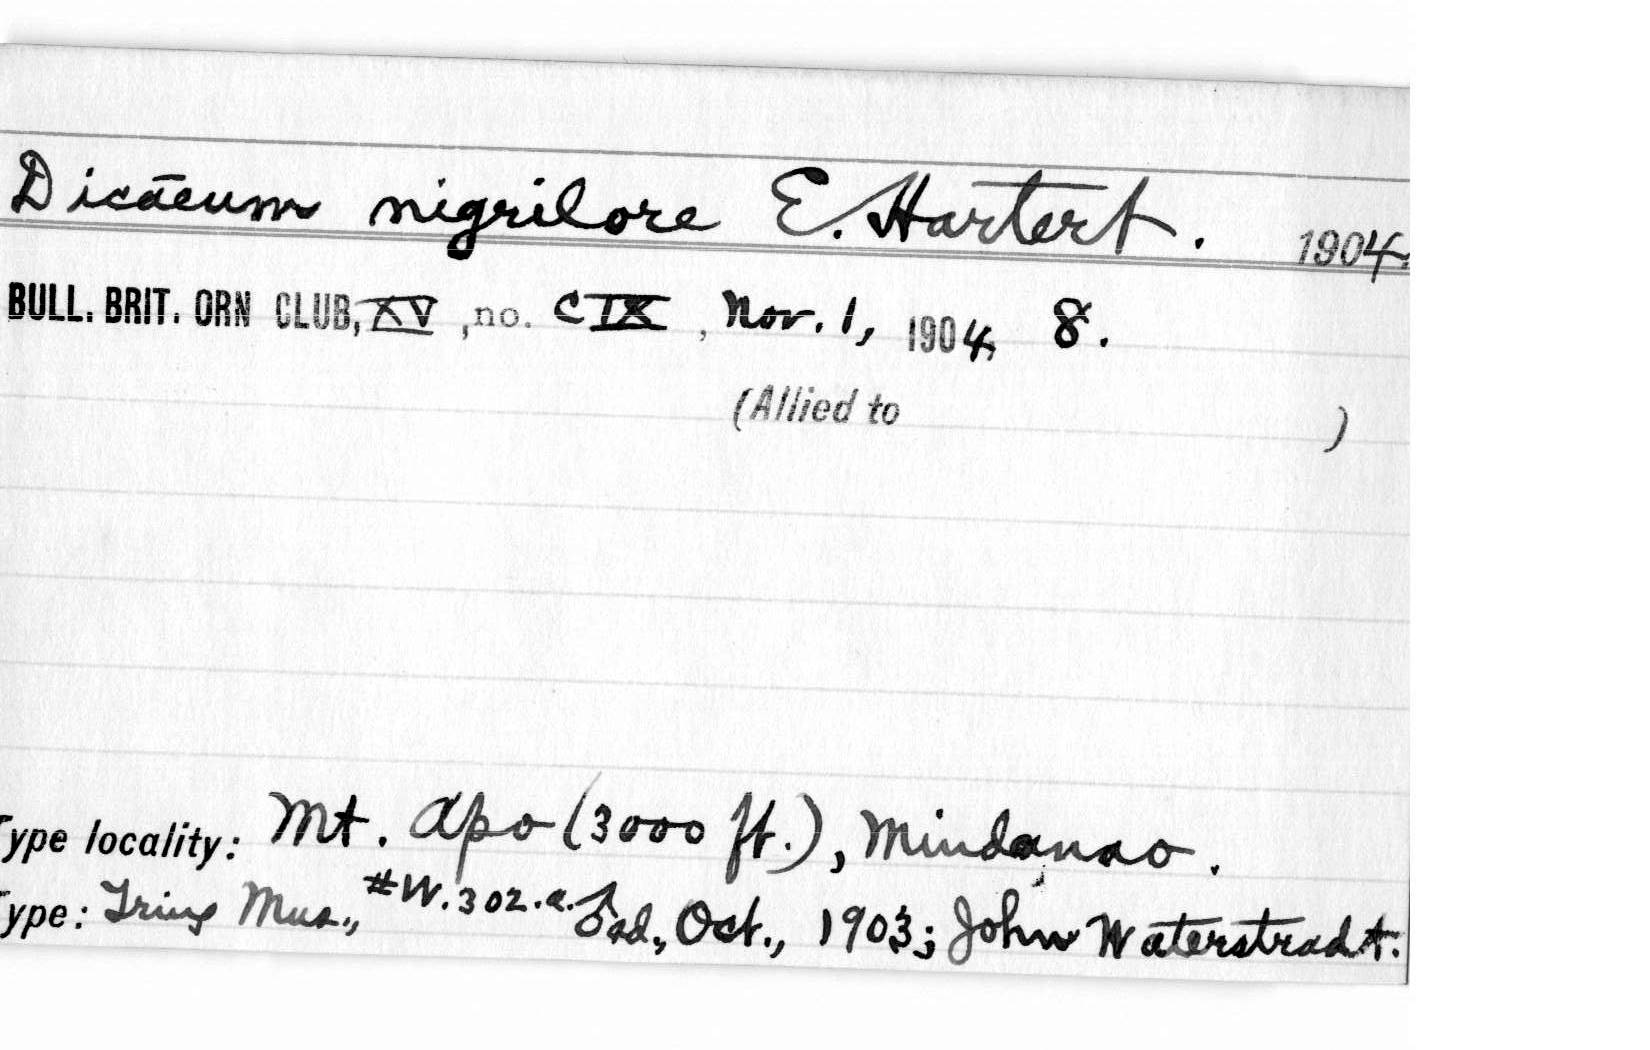 Dicaeum nigrilore E. Hartert. 1904.
BULL. BRIT. ORN CLUB, XV, no. CIX, Nov. 1, 1904, 8.
(Allied to )
Type locality: Mt. Apo (3000 ft.), Mindanao.
Type: Tring Mus., #W.302.a. ♂ ad., Oct., 1903; John Waterstradt.